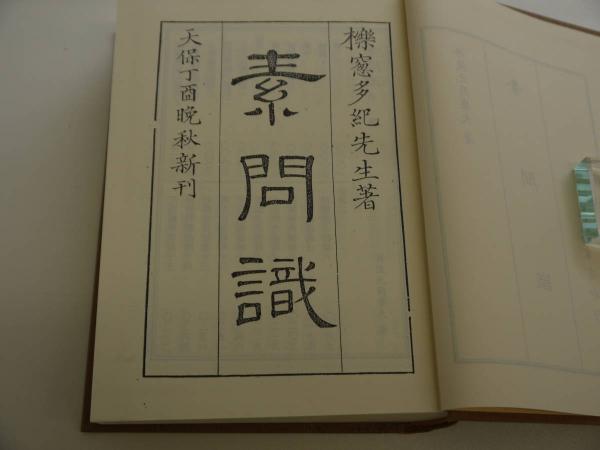 櫟窻多紀先生著
素問識
天保丁酉晩秋新刊